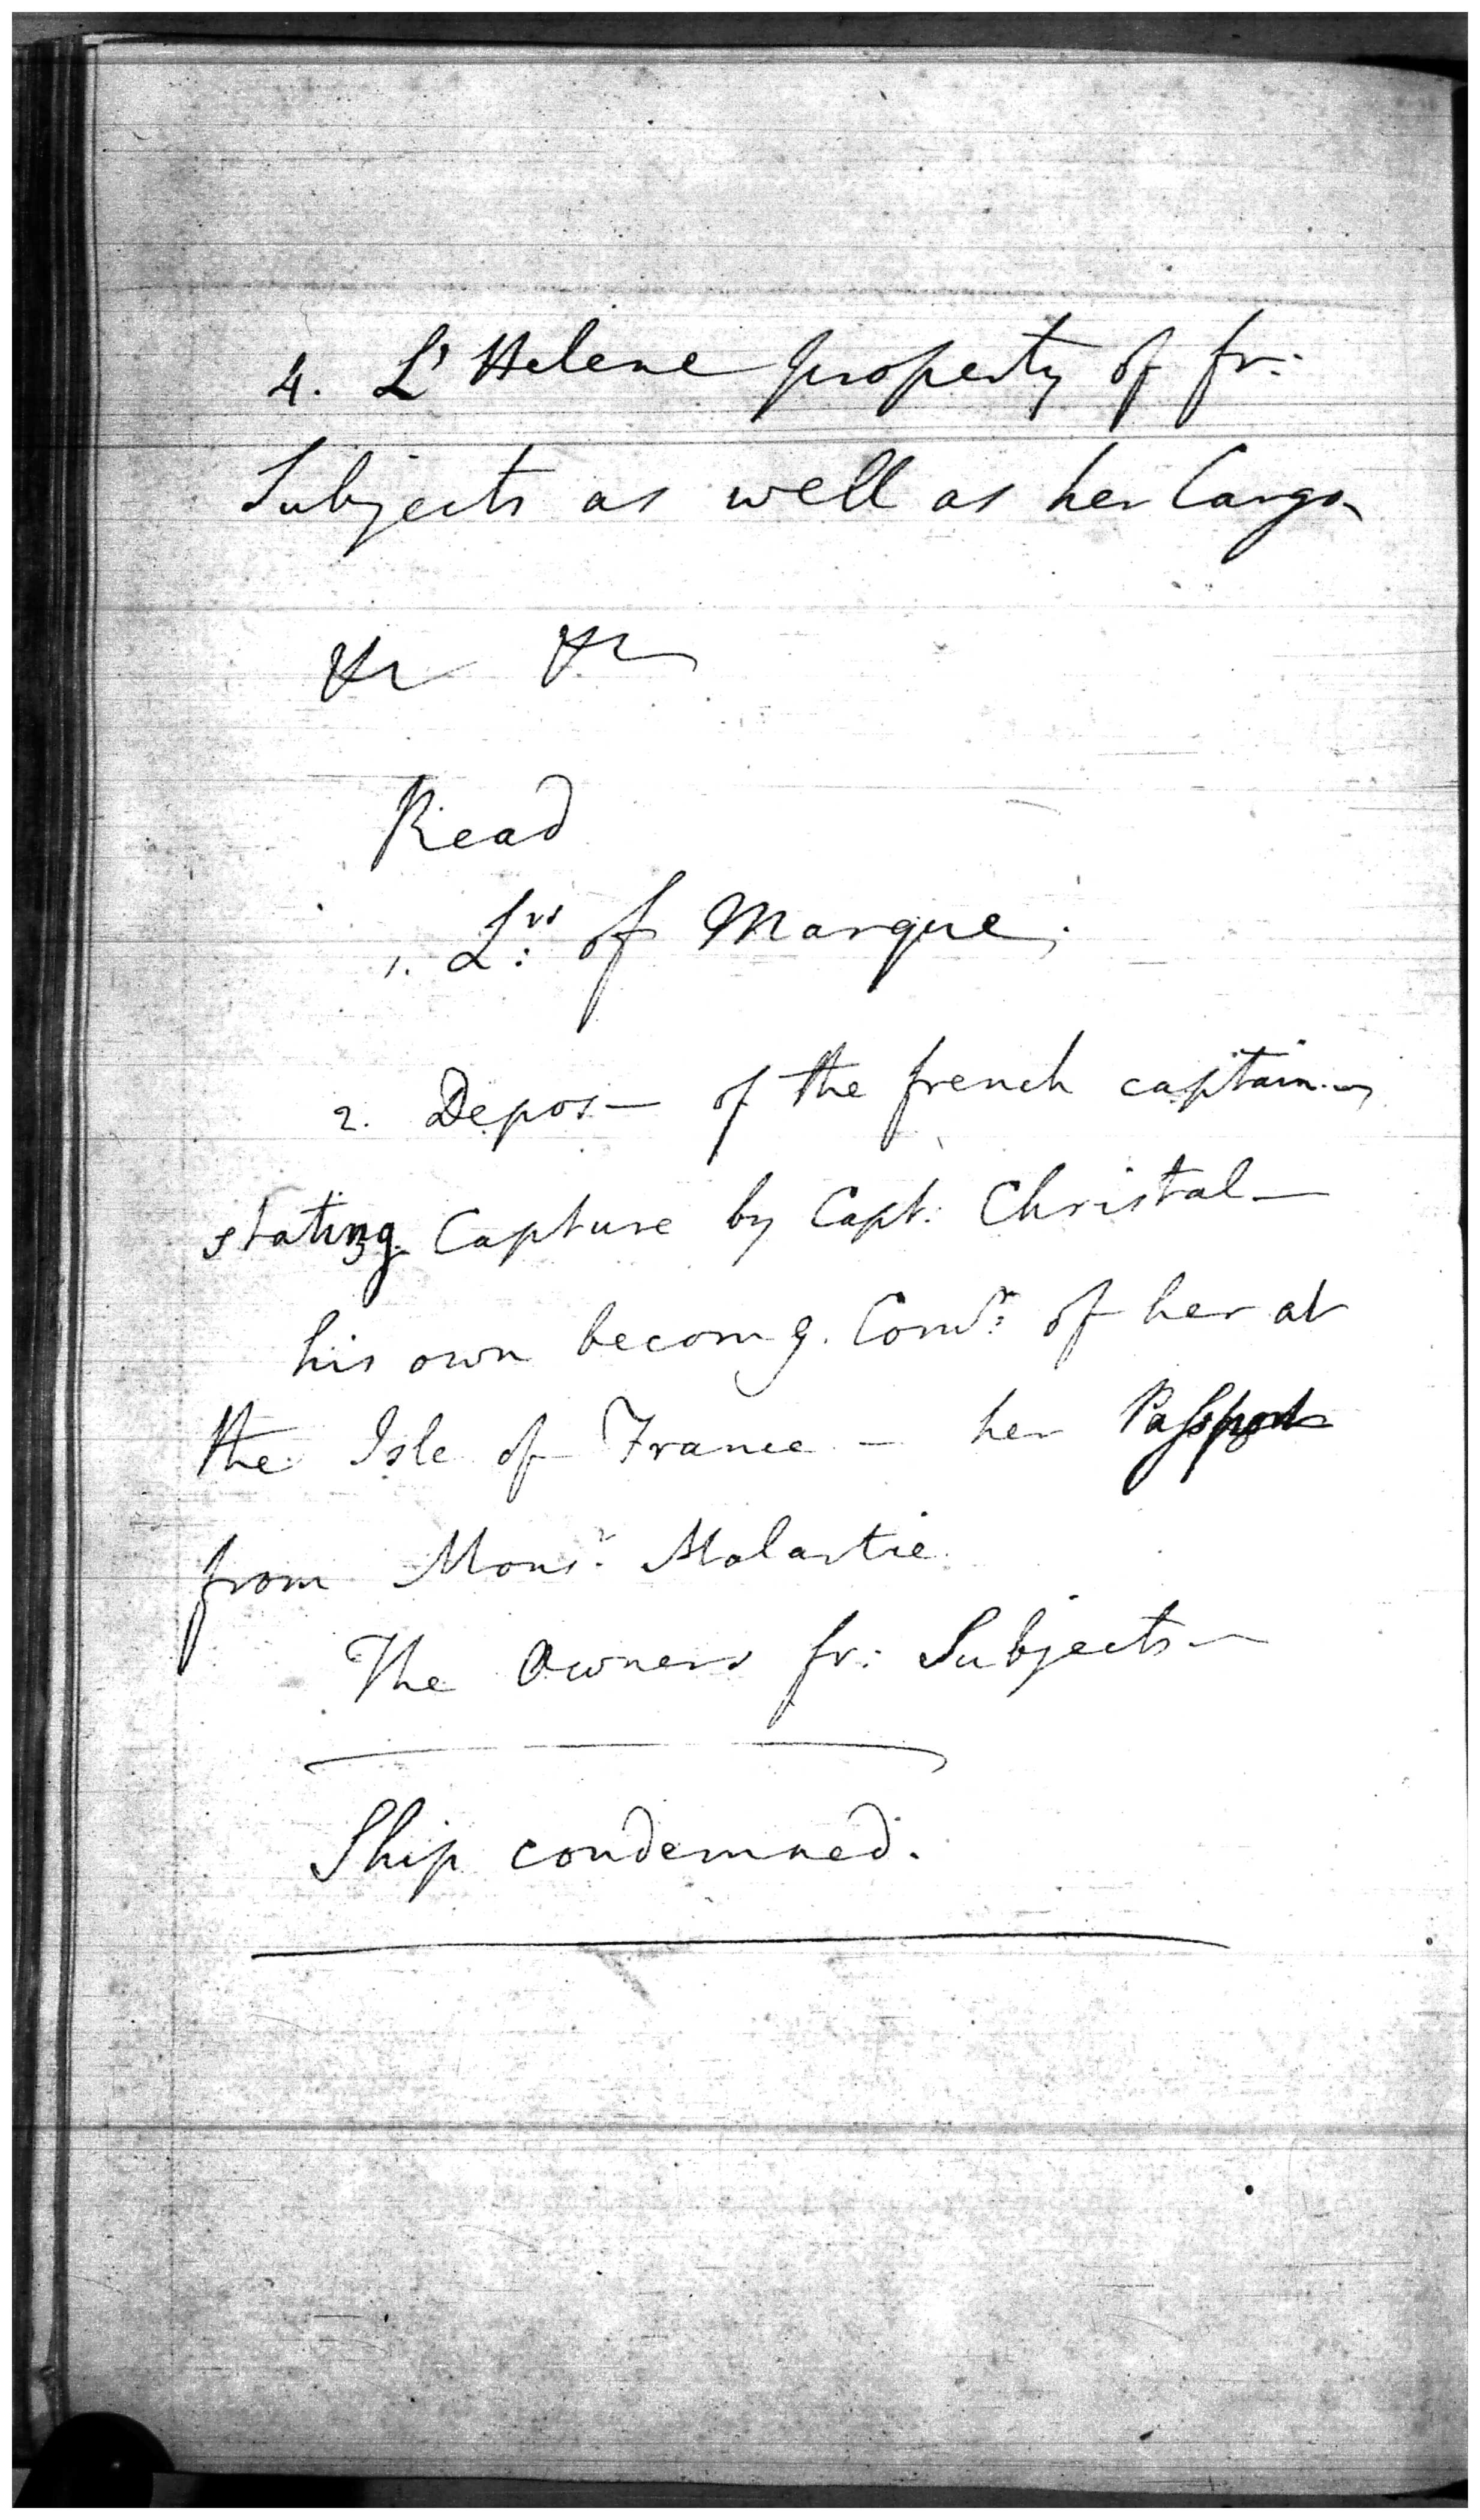 4. L'Helene property of fr:
Subjects as well as her Cargo
&c &c
Read
1. L:rs of Marque.
2. Depos— of the french captain—
stating Capture by Capt: Christal—
his own becomg. Comdr: of her at
the Isle of France — her Passport
from Monsr: Malartie.
The Owners fr: Subjects—
Ship condemned.